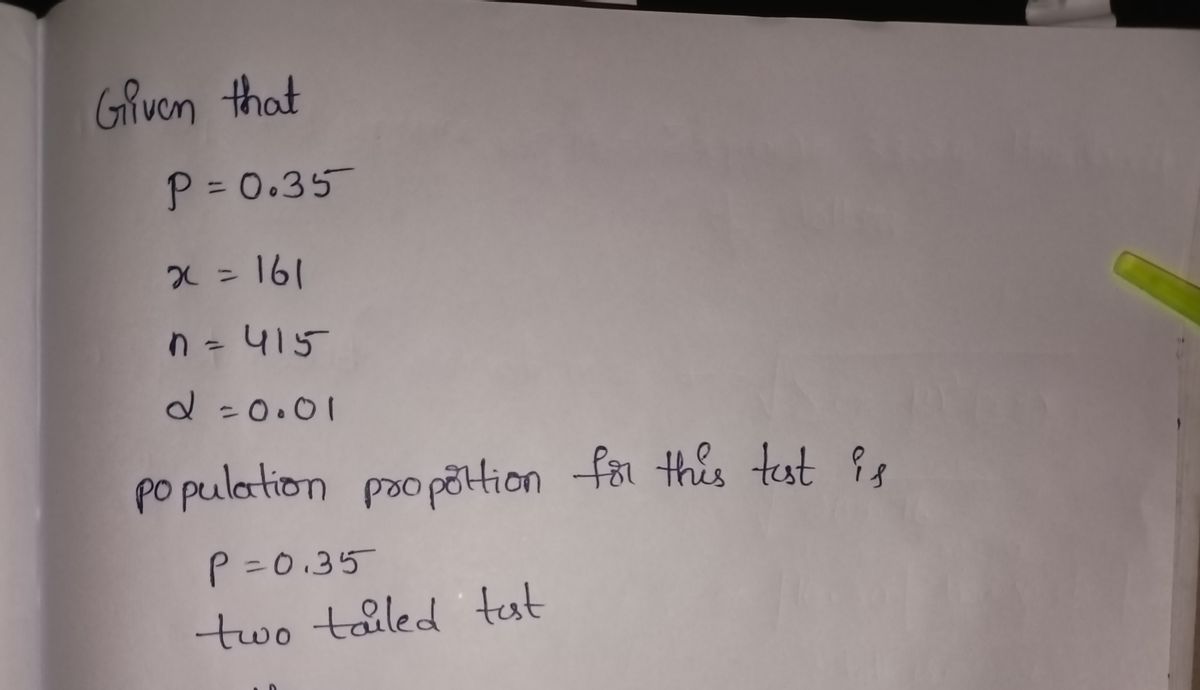 Given that
P = 0.35
x = 161
n = 415
α = 0.01
population proportion for this test is
P = 0.35
two tailed test